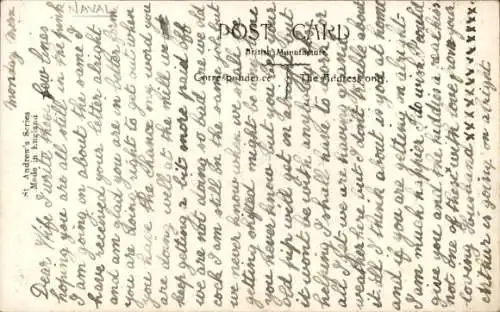 NAVAL
POST CARD
British Manufacture
Correspondence
The Address only
St. Andrew's Series
Made in England
Monday morn
Dear Wife I write these few lines
hoping you are all still in the pink
I am going on about the same I
have received your letter alright
and am glad you are in better form
you are doing right to get out when
you have the chance my word you
are doing well at the mill we
keep getting a bit more paid off
we are not doing so bad are we old
cock I am still on the same boat but
we never know when we will be
getting shifted might be any time
you never know but keep your
old up we'll get on a
it wont be with arguing
helping I shall have to
all I get we are having
weather here but I don't think about
it all I think about is you at home
and if you are getting on alright
I am much happier I do wish I could
give you and the kiddies a
not one of these with love from your
loving
Arthur is going on alright